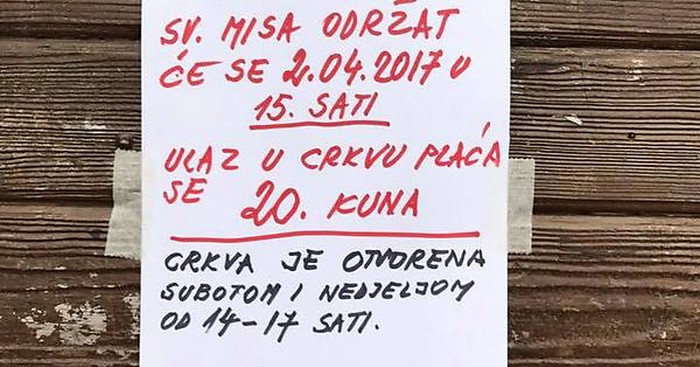 SV. MISA ODRŽAT
ĆE SE 2.04.2017 U
15. SATI
ULAZ U CRKVU PLAĆA
SE 20. KUNA
CRKVA JE OTVORENA
SUBOTOM I NEDJELJOM
OD 14-17 SATI.